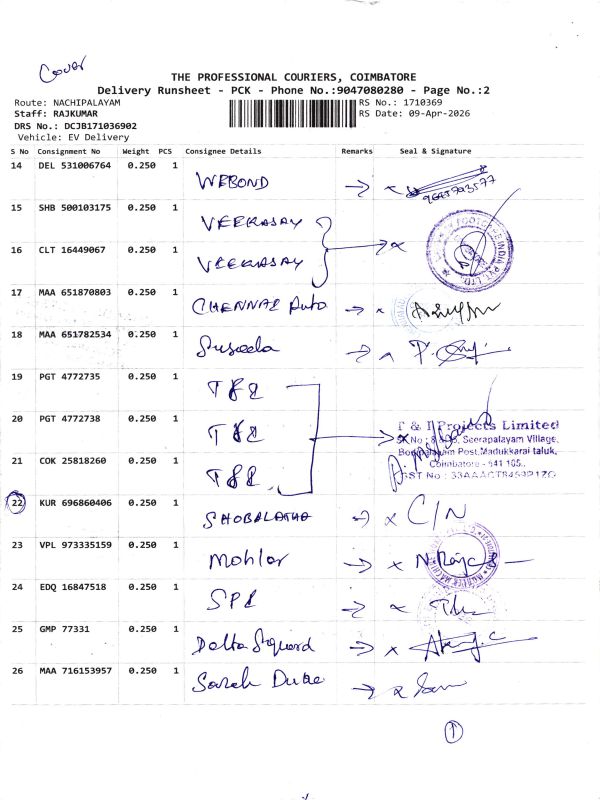 Cover
THE PROFESSIONAL COURIERS, COIMBATORE
Delivery Runsheet - PCK - Phone No.:9047080280 - Page No.:2
Route: NACHIPALAYAM
RS No.: 1710369
Staff: RAJKUMAR
RS Date: 09-Apr-2026
DRS No.: DCJB171036902
Vehicle: EV Delivery
S No Consignment No Weight PCS Consignee Details Remarks Seal & Signature
14 DEL 531006764 0.250 1 WEBOND
15 SHB 500103175 0.250 1 VEERASAY
16 CLT 16449067 0.250 1 VEERASAY
17 MAA 651870803 0.250 1 CHENNAI Auto
18 MAA 651782534 0.250 1 Suseela
19 PGT 4772735 0.250 1 T&I
20 PGT 4772738 0.250 1 T&I
T & I Projects Limited
Seerapalayam Village,
21 COK 25818260 0.250 1 T&I
Post, Madukkarai taluk,
Coimbatore - 641 105.
22 KUR 696860406 0.250 1 SHOBALATHA C/N
23 VPL 973335159 0.250 1 Mohler
24 EDQ 16847518 0.250 1 SPI
25 GMP 77331 0.250 1 Delta Squard
26 MAA 716153957 0.250 1 Sarah Duke